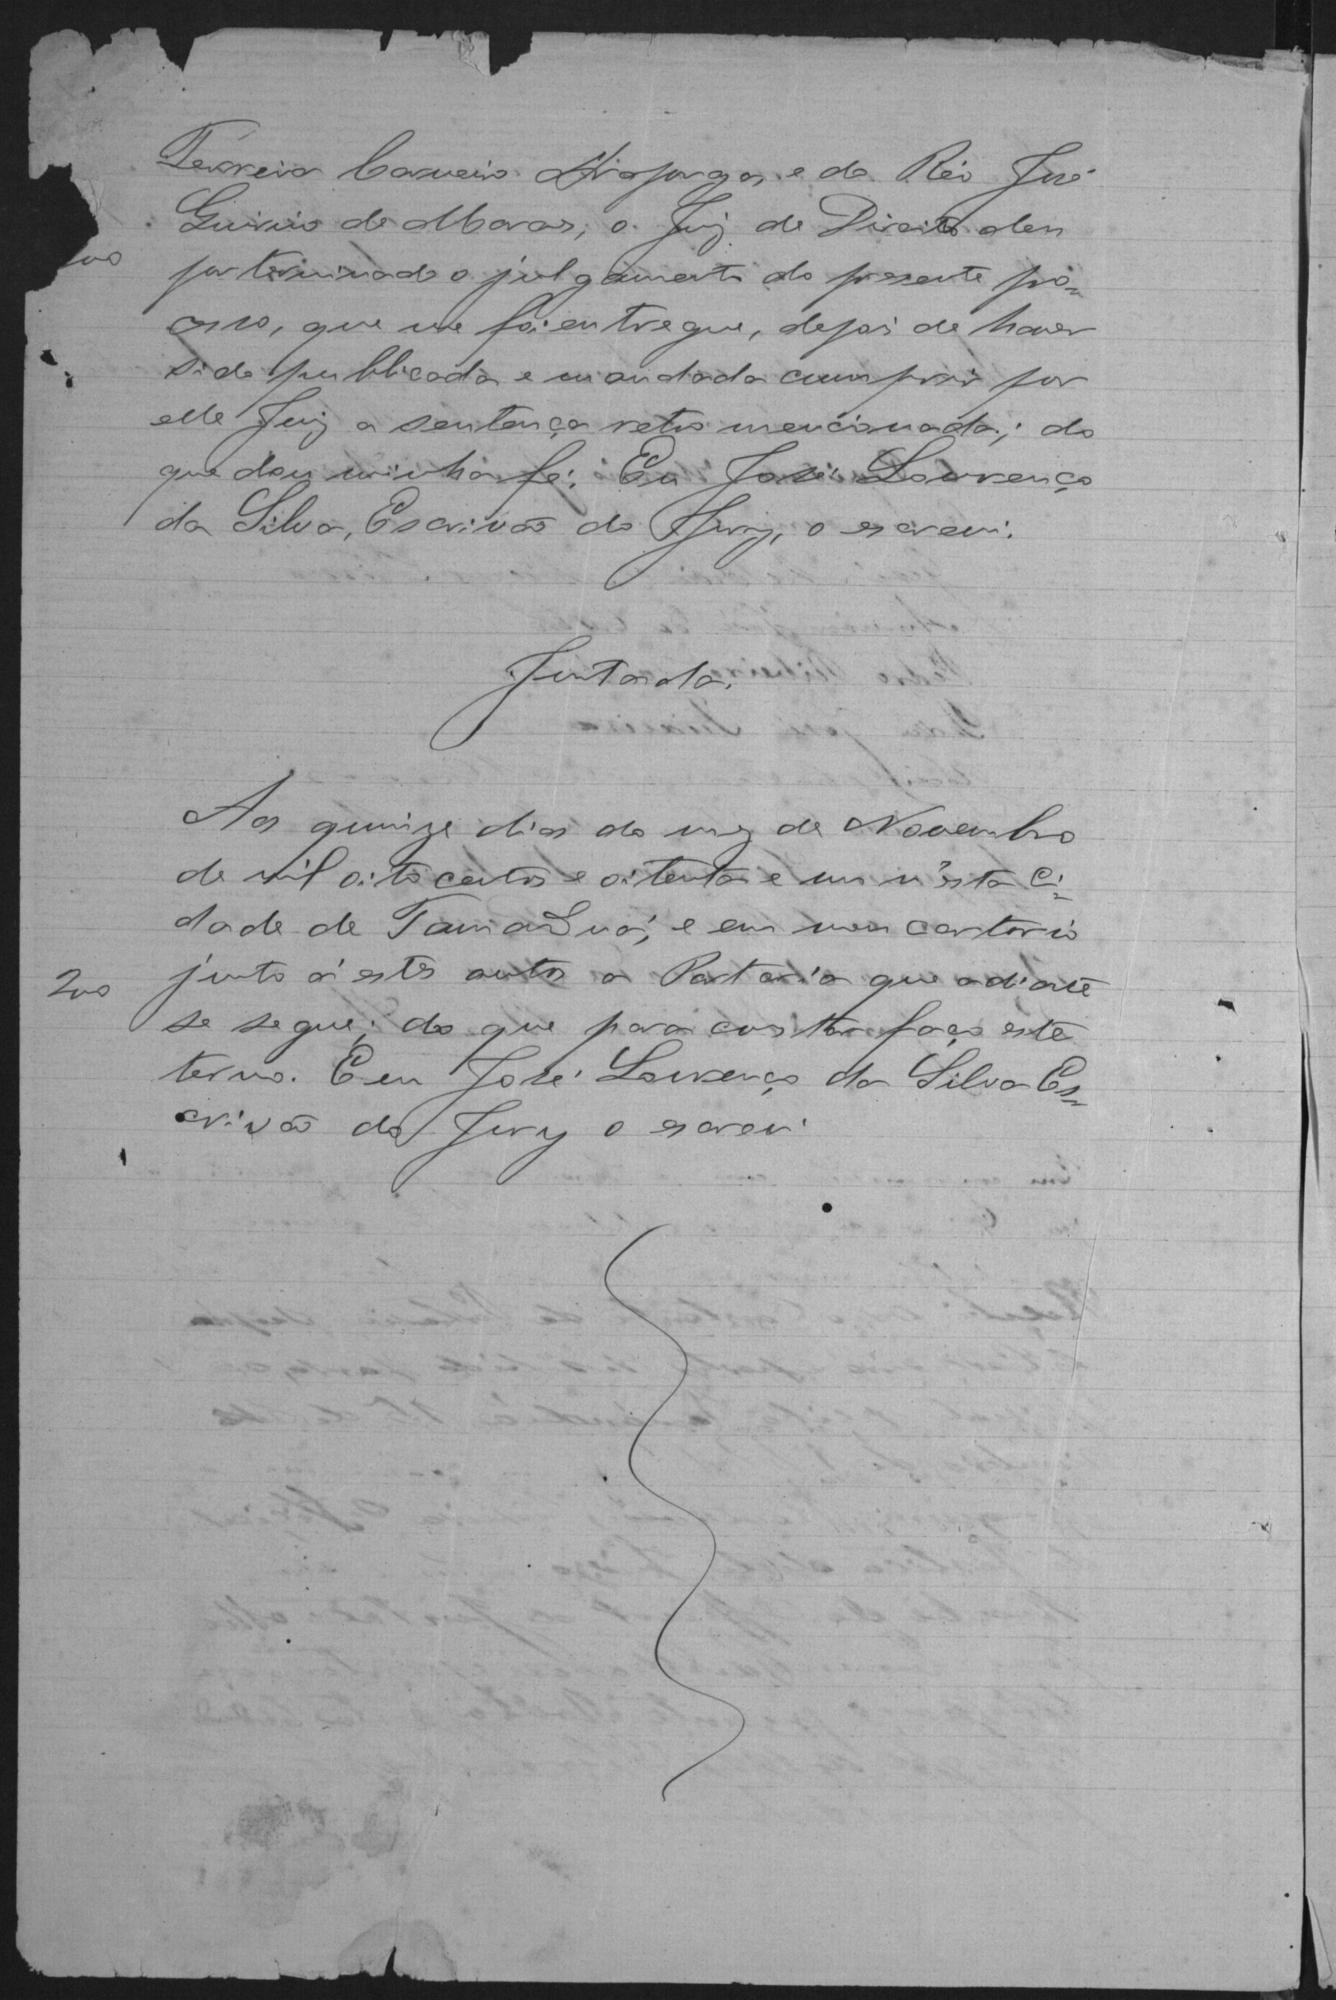 Ferreira Carneiro e do Réo José
de Moraes, o Juiz de Direito deu
por terminado o julgamento do presente pro-
cesso, que me foi entregue, depois de haver
sido publicada e mandada cumprir por
elle Juiz a sentença retro mencionada; do
que dou minha fé. Eu José Lourenço
da Silva, Escrivão do Jury, o escrevi.
Juntada.
Aos quinze dias do mez de Novembro
de mil oito centos e oitenta e um n'esta Ci-
dade de e em meu cartorio
200
junto á estes autos a Portaria que adiante
se segue; do que para constar faço este
termo. E eu José Lourenço da Silva Es-
crivão do Jury o escrevi